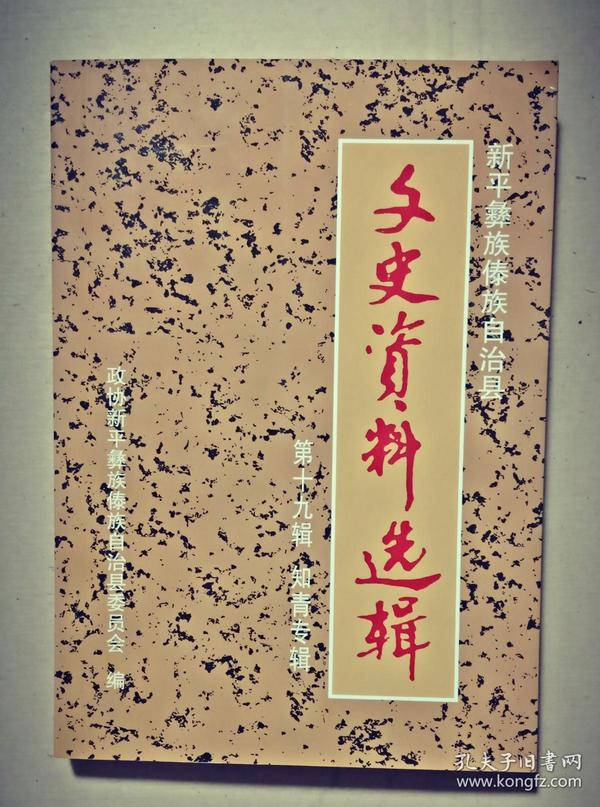 新平彝族傣族自治县
文史資料选辑
第十九辑 知青专辑
政协新平彝族傣族自治县委员会 编
孔夫子旧書网
www.kongfz.com